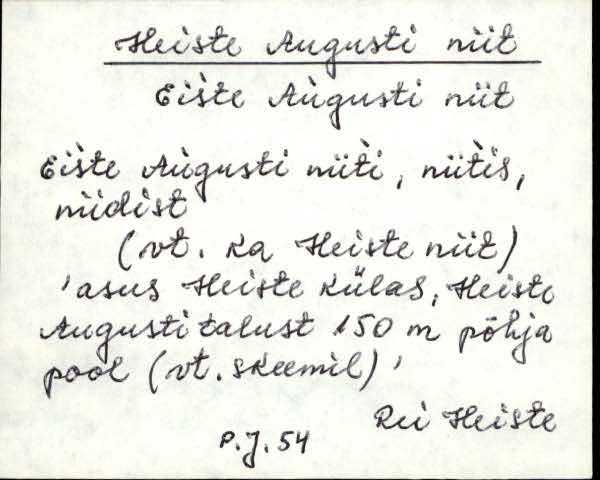 Heiste Augusti niit
Eìšte Aùgusti niit
Eìšte Aùgusti niìti, niìtis,
niidist
(vt. ka Heiste niit)
'asus Heiste külas, Heiste
Augusti talust 150 m põhja
pool (vt. skeemil)'
Rei Heiste
P.J. 54